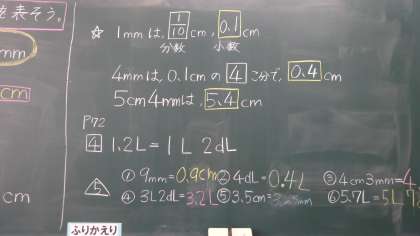 を表そう。
☆ 1mmは、1/10cm、0.1cm
分数 小数
mm
4mmは、0.1cmの4こ分で、0.4cm
cm
5cm4mmは、5.4cm
P172
4 1.2L=1L 2dL
5 ①9mm=0.9cm ②4dL=0.4L ③4cm3mm=4.
cm
④3L2dL=3.2L ⑤3.5cm= ⑥5.7L=5L7
ふりかえり